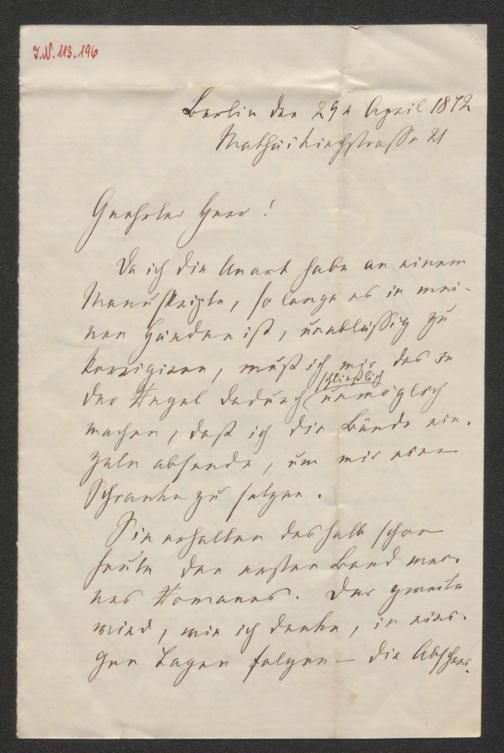 J.N. 113.196
Berlin den 29t April 1872
Mathäikirchstrasse 21
Geehrter Herr!
Da ich die Unart habe an einem
Manuskripte, so lange es in mei-
nen Händen ist, unablässig zu
korrigiren, muß ich mir das in
schließlich
der Regel dadurch unmöglich
machen, daß ich die Bände ein-
zeln absende, um mir eine
Schranke zu setzen.
Sie erhalten deshalb schon
heute den ersten Band mei-
nes Romanes. Der zweite
wird, wie ich denke, in eini-
gen Tagen folgen – die Abschrei-